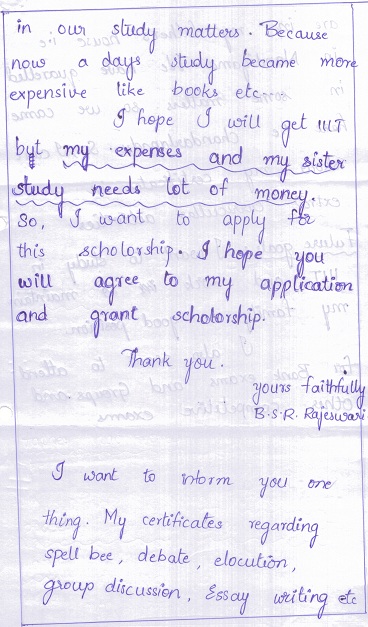 in our study matters. Because
now a days study became more
expensive like books etc...
I hope I will get IIIT
but my expenses and my sister
study needs lot of money.
So, I want to apply for
this scholorship. I hope you
will agree to my application
and grant scholorship.
Thank you.
yours faithfully
B.S.R. Rajeswari
I want to inform you one
thing. My certificates regarding
spell bee, debate, elocution,
group discussion, Essay writing etc